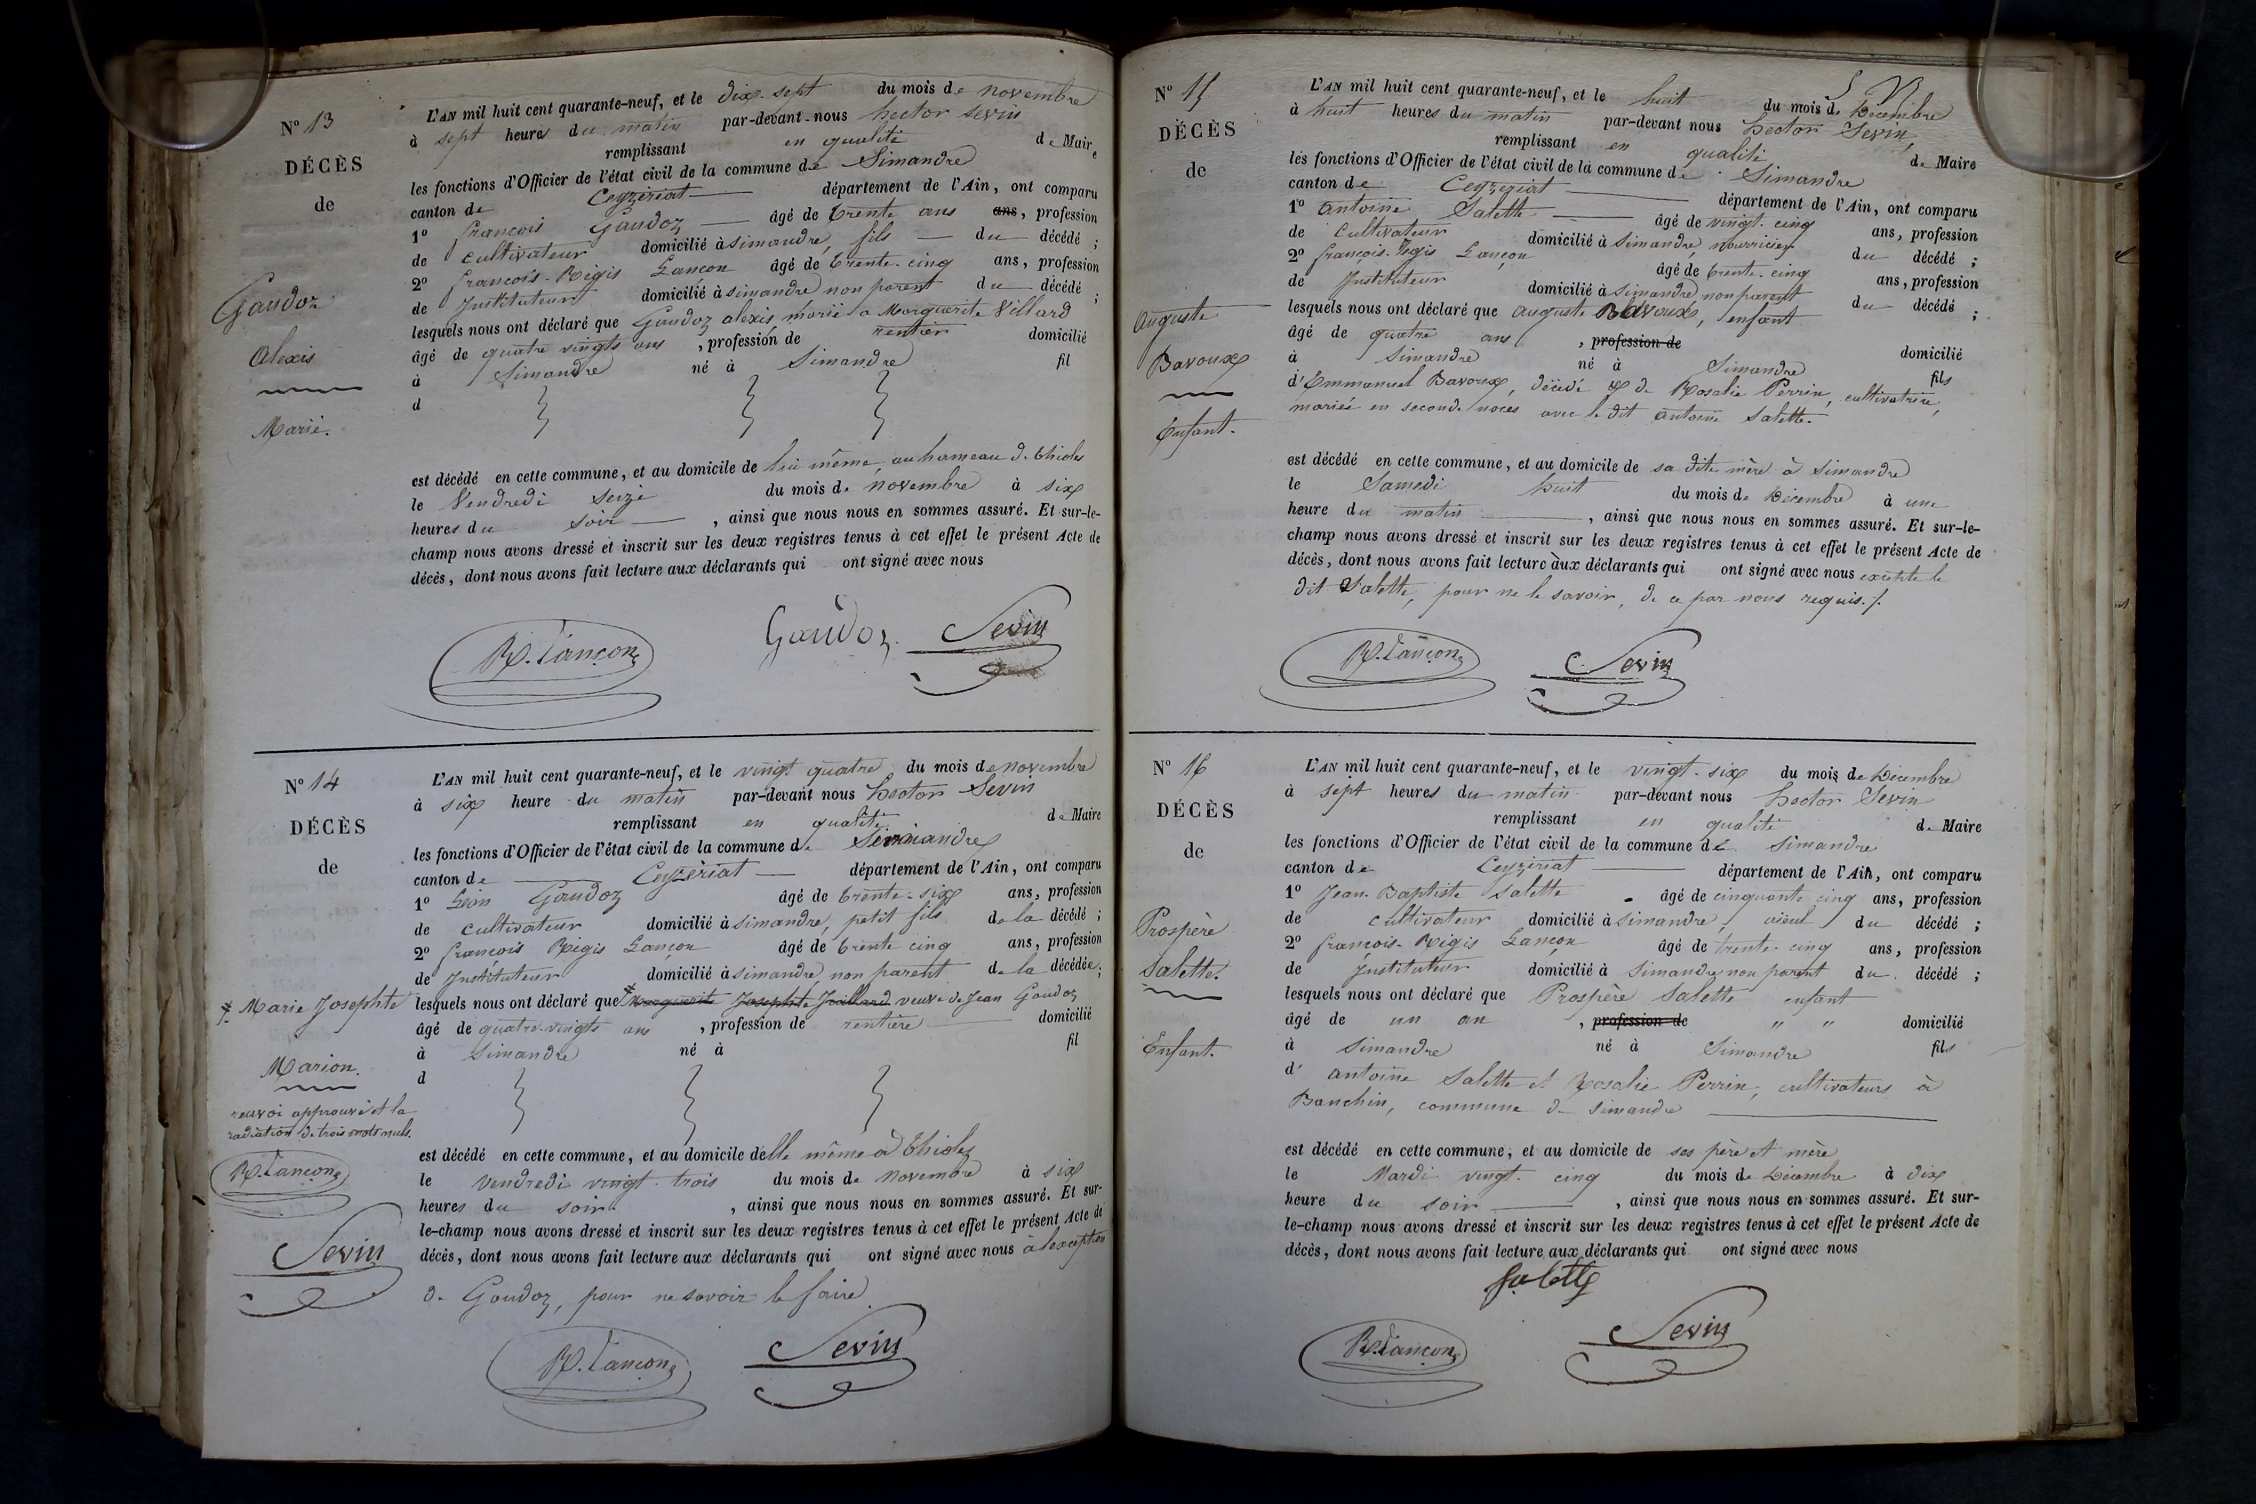 N° 13
DÉCÈS
de
Gaudoz
Alexis
Marié.
L'AN mil huit cent quarante-neuf, et le dix-sept du mois de novembre
à sept heures du matin par-devant-nous hector sevin
remplissant en qualité de Maire
les fonctions d'Officier de l'état civil de la commune de Simandre
canton de Ceyzeriat département de l'Ain, ont comparu
1° françois Gaudoz âgé de trente ans ans, profession
de cultivateur domicilié à simandre, fils du décédé ;
2° françois-Régis Lançon âgé de trente-cinq ans, profession
de Instituteur domicilié à simandre non parent du décédé ;
lesquels nous ont déclaré que Gaudoz alexis, marié a Marguerite Villard
âgé de quatre vingts ans , profession de rentier domicilié
à Simandre né à Simandre fil
d
est décédé en cette commune, et au domicile de lui même, au hameau de thioles
le Vendredi seize du mois de novembre à six
heures du soir , ainsi que nous nous en sommes assuré. Et sur-le-
champ nous avons dressé et inscrit sur les deux registres tenus à cet effet le présent Acte de
décès, dont nous avons fait lecture aux déclarants qui ont signé avec nous
R. Lançon Gaudoz. Sevin
N° 14
DÉCÈS
de
# Marie Josephte
Marion.
renvoi approuvé et la
radiation de trois mots nuls.
R. Lançon
Sevin
L'AN mil huit cent quarante-neuf, et le vingt quatre du mois de novembre
à six heure du matin par-devant nous hector Sevin
remplissant en qualité de Maire
les fonctions d'Officier de l'état civil de la commune de Simandre
canton de Ceyzeriat département de l'Ain, ont comparu
1° Léon Gaudoz âgé de trente-six ans, profession
de cultivateur domicilié à simandre, petit fils de la décédé ;
2° françois Régis Lançon âgé de trente cinq ans, profession
de Instituteur domicilié à simandre non parent de la décédée ;
lesquels nous ont déclaré que # Marguerite Josephte Joillard veuve de Jean Gaudoz
âgé de quatre-vingts ans , profession de rentière domicilié
à Simandre né à fil
d
est décédé en cette commune, et au domicile d'elle même à thiolez
le vendredi vingt-trois du mois de novembre à six
heures du soir , ainsi que nous nous en sommes assuré. Et sur-
le-champ nous avons dressé et inscrit sur les deux registres tenus à cet effet le présent Acte de
décès, dont nous avons fait lecture aux déclarants qui ont signé avec nous à l'exception
de Gaudoz, pour ne savoir le faire.
R. Lançon Sevin
N° 15
DÉCÈS
de
Auguste
Bavoux
Enfant.
L'AN mil huit cent quarante-neuf, et le huit du mois de Décembre
à huit heures du matin par-devant nous hector Sevin,
remplissant en qualité de Maire
les fonctions d'Officier de l'état civil de la commune de Simandre
canton de Ceyzeriat département de l'Ain, ont comparu
1° antoine Salette âgé de vingt-cinq ans, profession
de cultivateur domicilié à simandre, nourricier du décédé ;
2° françois-Régis Lançon âgé de trente-cinq ans, profession
de Instituteur domicilié à simandre, non parent du décédé ;
lesquels nous ont déclaré que auguste Bavoux, enfant
âgé de quatre ans , profession de domicilié
à Simandre né à Simandre fils
d'Emmanuel Bavoux, décédé & de Rosalie Perrin, cultivatrice,
mariée en seconde noces avec le dit antoine Salette.
est décédé en cette commune, et au domicile de sa dite mère à Simandre
le Samedi huit du mois de Décembre à une
heure du matin , ainsi que nous nous en sommes assuré. Et sur-le-
champ nous avons dressé et inscrit sur les deux registres tenus à cet effet le présent Acte de
décès, dont nous avons fait lecture aux déclarants qui ont signé avec nous excepté le
dit Salette, pour ne le savoir, de ce par nous requis./.
R. Lançon C. Sevin
N° 16
DÉCÈS
de
Prospère
Salette.
Enfant.
L'AN mil huit cent quarante-neuf, et le vingt-six du mois de Décembre
à sept heures du matin par-devant nous hector Sevin
remplissant en qualité de Maire
les fonctions d'Officier de l'état civil de la commune de Simandre
canton de Ceyzeriat département de l'Ain, ont comparu
1° Jean-Baptiste Salette âgé de cinquante cinq ans, profession
de cultivateur domicilié à simandre, aieul du décédé ;
2° françois-Régis Lançon âgé de trente-cinq ans, profession
de Instituteur domicilié à Simandre non parent du décédé ;
lesquels nous ont déclaré que Prospère Salette enfant
âgé de un an , profession de " " domicilié
à Simandre né à Simandre fils
d' antoine Salette et Rosalie Perrin, cultivateurs à
Banchin, commune de Simandre
est décédé en cette commune, et au domicile de ses père et mère
le Mardi vingt-cinq du mois de Décembre à dix
heure du soir , ainsi que nous nous en sommes assuré. Et sur-
le-champ nous avons dressé et inscrit sur les deux registres tenus à cet effet le présent Acte de
décès, dont nous avons fait lecture aux déclarants qui ont signé avec nous
Salette
R. Lançon Sevin